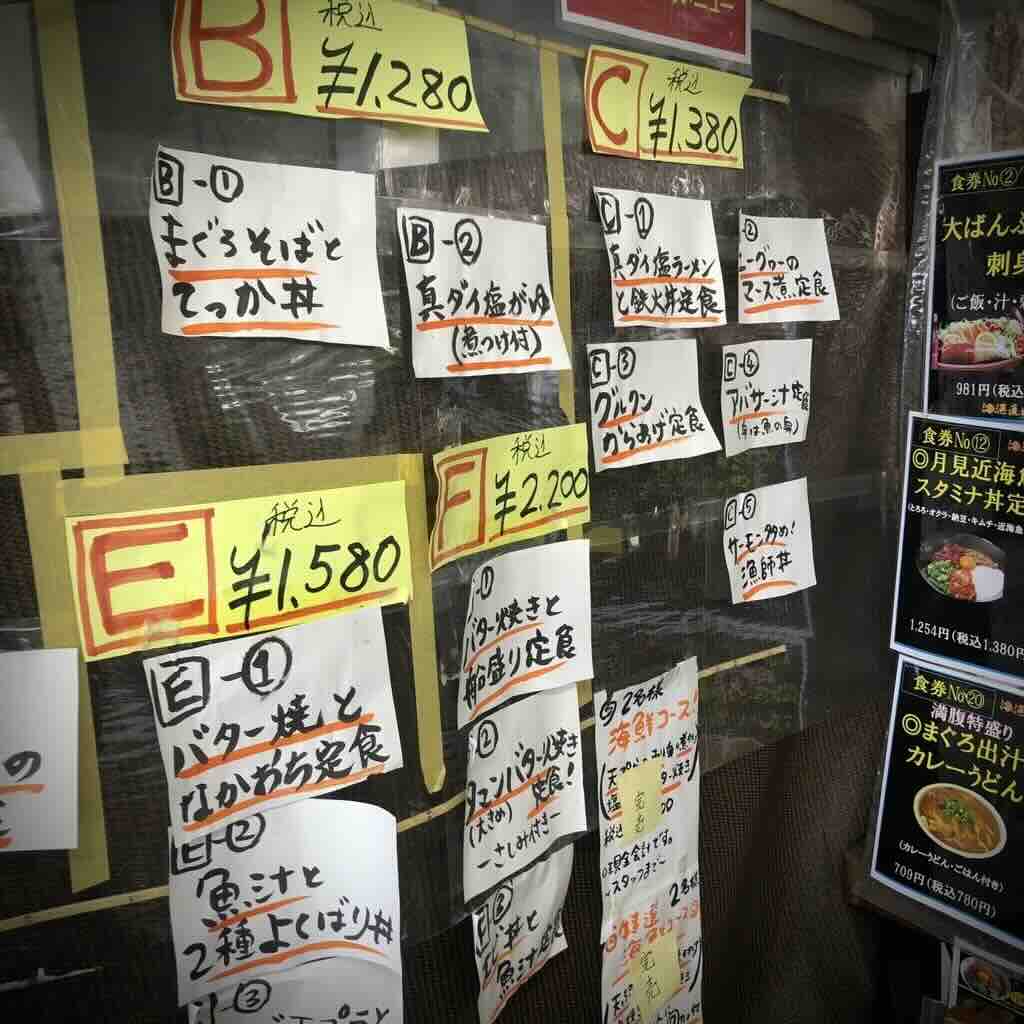 B 税込
¥1,280
B-①
まぐろそばと
てっか丼
B-②
真ダイ塩がゆ
(煮つけ付)
C 税込
¥1,380
C-①
真ダイ塩ラーメン
と鉄火丼定食
②
マース煮定食
C-③
グルクン
からあげ定食
C-④
アバサー汁定食
C-⑤
サーモン多め!
漁師丼
E 税込
¥1,580
E-①
バター焼と
なかおち定食
E-②
魚汁と
2種よくばり丼
③
F 税込
¥2,200
①
バター焼きと
船盛り定食
②
タマンバター焼き
(大きめ) 定食!
-さしみ付き-
③
魚汁定食
2名様
海鮮コース!
完売
税込
現金会計です。
スタッフまで
2名様
完売
の
食券No②
大ばんぶ
刺身
(ご飯・汁・
981円(税込
食券No⑫
◎月見近海
スタミナ丼定
(とろろ・オクラ・納豆・キムチ・近海魚
1,254円(税込1,380円
食券No⑳
満腹特盛り
◎まぐろ出汁
カレーうどん
(カレーうどん・ごはん付き)
709円(税込780円)